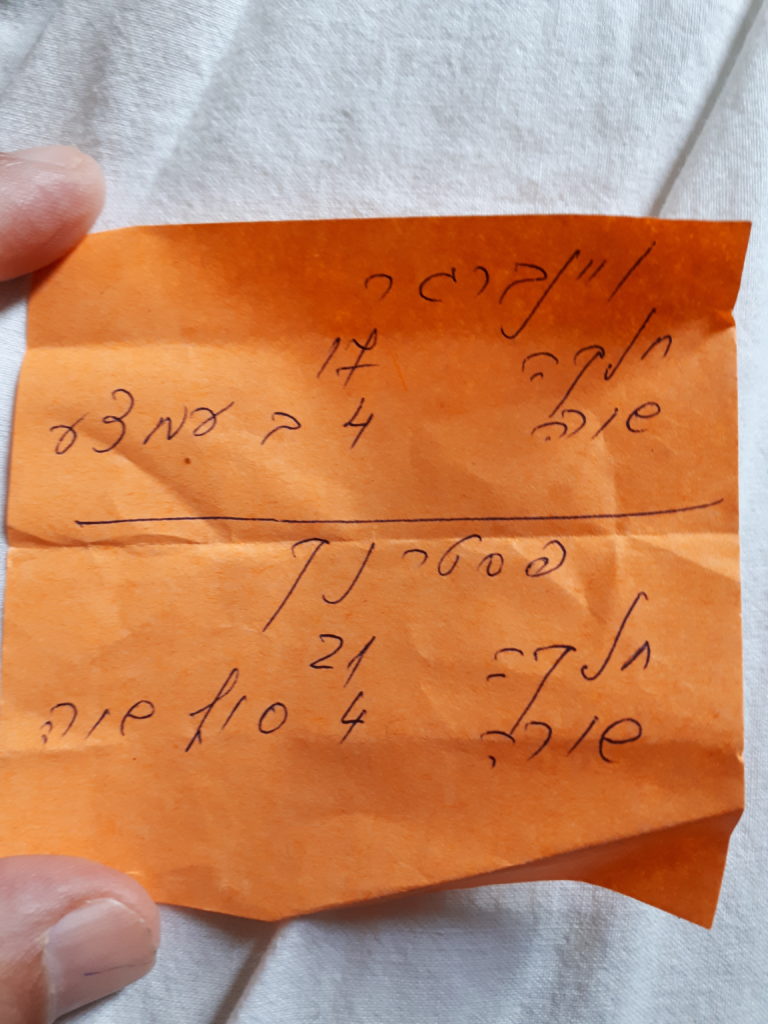 ויינברגר
חלקה 17
שורה 4 ב עמצע
פסטרנק
חלקה 21
שורה 4 סוף שורה